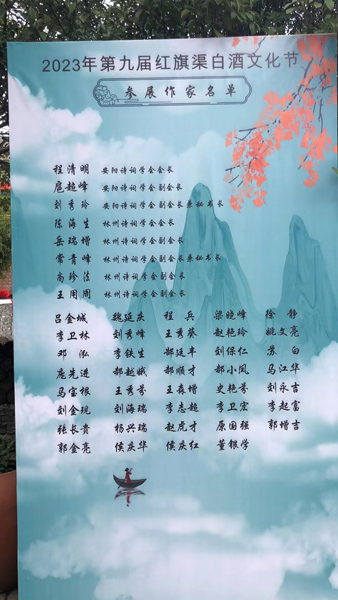 2023年第九届红旗渠白酒文化节
参展作家名单
程清明 安阳诗词学会会长
扈超峰 安阳诗词学会副会长
刘秀玲 安阳诗词学会副会长兼秘书长
陈海生 林州诗词学会会长
岳瑞增 林州诗词学会副会长
常青峰 林州诗词学会副会长兼秘书长
尚珍法 林州诗词学会副会长
王用周 林州诗词学会副会长
吕金城 魏延庆 程兵 梁晓峰 徐静
李卫林 刘秀峰 王秀葵 赵艳玲 姚文亮
邓泓 李铁生 郝廷丰 刘保仁 苏白
庞先进 郝越娥 郝顺才 郝小凤 马江华
马宝根 王秀芬 王森增 史艳芳 刘永吉
刘金现 刘海瑞 李志超 李卫宏 李超富
张长贵 杨兴瑞 赵虎才 原国强 郭增吉
郭金亮 侯庆华 侯庆红 董银学